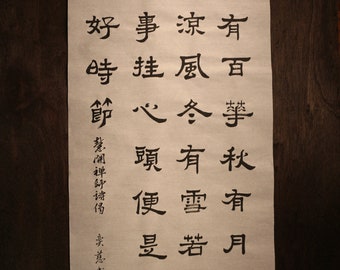 有百華秋有月
涼風冬有雪若
事挂心頭便是
好時節
慧開禪師詩偈